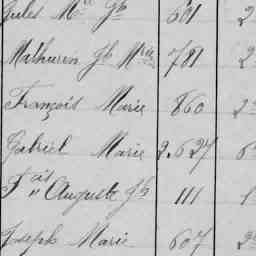 Jules Mie Jh 601 2
Mathurin Jh Mrie 781 2
François Marie 860 2
Gabriel Marie 2.627 6
Fcis Auguste Jh 111 1
Joseph Marie 607 2